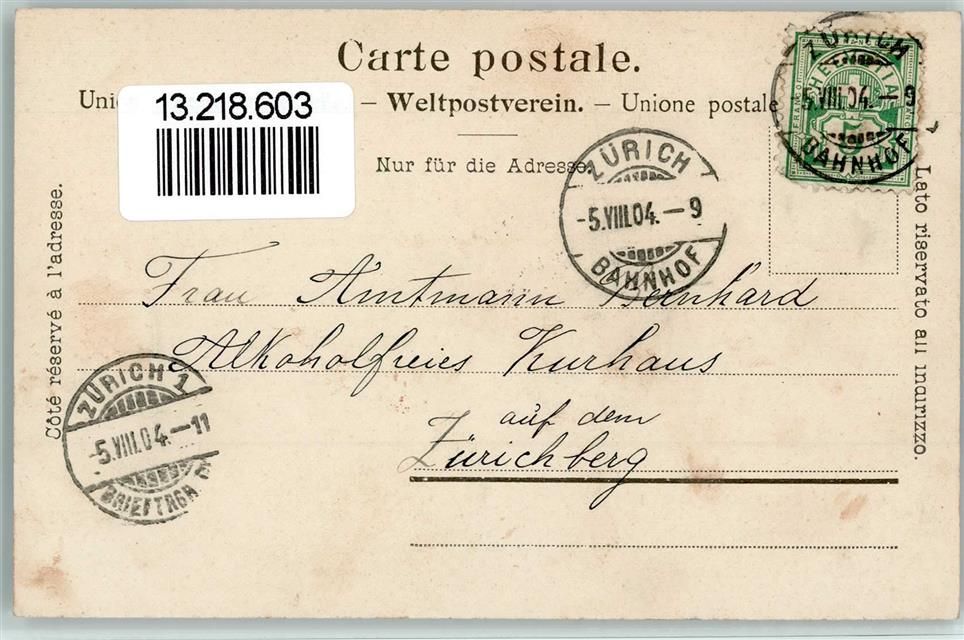 Carte postale.
Unio — Weltpostverein. — Unione postale
13.218.603
Nur für die Adresse.
Côté réservé à l'adresse.
Lato riservato all indirizzo.
HELVETIA
FRANCO
5
ZÜRICH
5.VIII.04.–9
BAHNHOF
ZÜRICH
-5.VIII.04.–9
BAHNHOF
Frau Amtmann Bernhard
Alkoholfreies Kurhaus
auf dem
Zürichberg
ZÜRICH 1
-5.VIII.04.–11
BRIEFTRGR